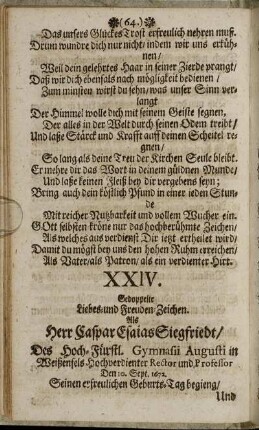 (64.)
Das unsers Glückes Trost erfreulich nehren muß.
Drum wundre dich nur nicht/ indem wir uns erküh-
nen/
Weil dein gelehrtes Haar in seiner Zierde prangt/
Daß wir dich ebenfals nach mögligkeit bedienen/
Zum minsten wirst du sehn/ was unser Sinn ver-
langt
Der Himmel wolle dich mit seinem Geiste segnen,
Der alles in der Welt durch seinen Odem treibt/
Und laße Stärck und Krafft auff deinen Scheitel re-
gnen/
So lang als deine Treu der Kirchen Seule bleibt.
Er mehre dir das Wort in deinem güldnen Munde/
Und laße keinen Fleiß bey dir vergebens seyn;
Bring auch dein köstlich Pfund in einer ieden Stun-
de
Mit reicher Nutzbarkeit und vollem Wucher ein.
GOtt selbsten kröne nur das hochberühmte Zeichen/
Als welches aus verdienst Dir ietzt ertheilet wird/
Damit du mögst bey uns den hohen Ruhm erreichen/
Als Vater/ als Patron/ als ein verdienter Hirt.
XXIV.
Gedoppelte
Liebes-und Freuden-Zeichen.
Als
Herr Caspar Esaias Siegfriedt/
Des Hoch-Fürstl. Gymnasii Augusti in
Weißenfels Hochverdienter Rector und Professor
Den 10. Sept. 1672.
Seinen erfreulichen Geburts-Tag begieng/
Und